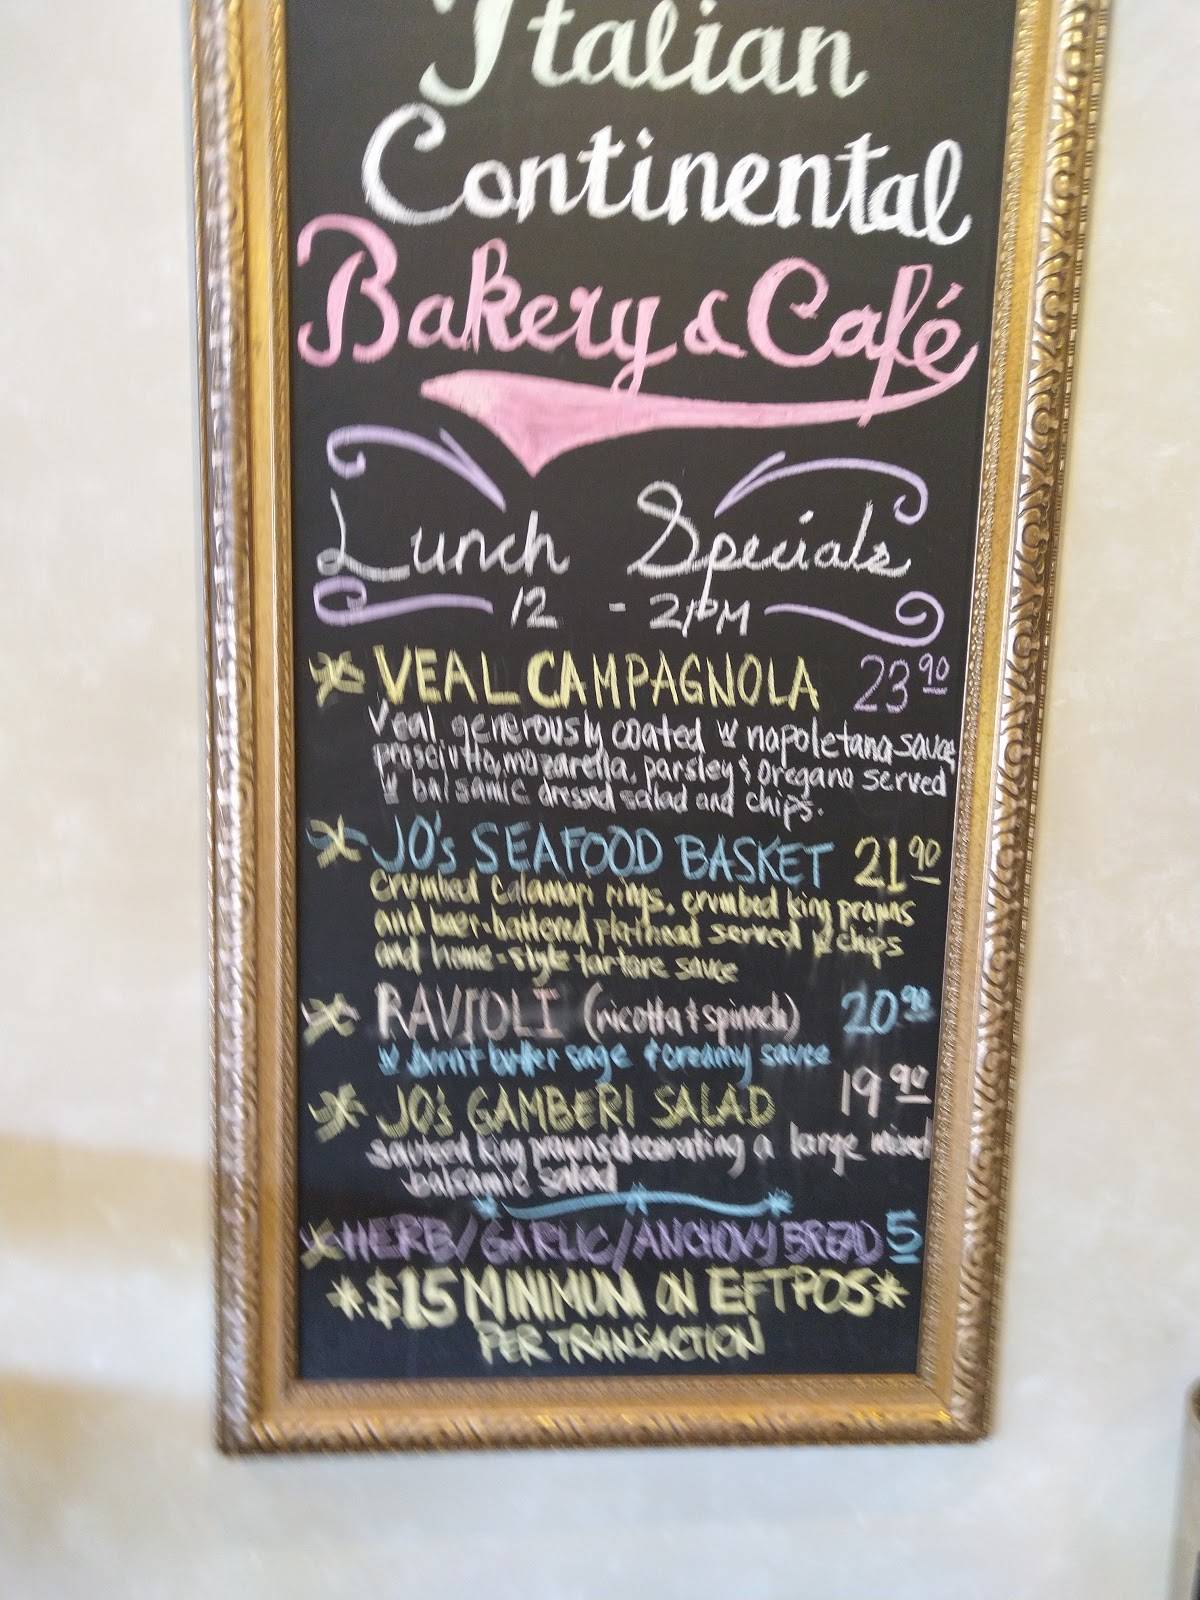 Italian
Continental
Bakery & Café
Lunch Specials
12 - 2PM
VEAL CAMPAGNOLA 23.90
Veal generously coated w napoletana sauce,
prosciutto, mozarella, parsley & oregano served
w balsamic dressed salad and chips.
JO's SEAFOOD BASKET 21.90
crumbed calamari rings, crumbed king prawns
and beer-battered flathead served w chips
and home-style tartare sauce
RAVIOLI (ricotta & spinach) 20.90
w burnt butter sage & creamy sauce
JO's GAMBERI SALAD 19.90
sauteed king prawns decorating a large mixed
balsamic salad
HERB/GARLIC/ANCHOVY BREAD 5
*$15 MINIMUM ON EFTPOS*
PER TRANSACTION